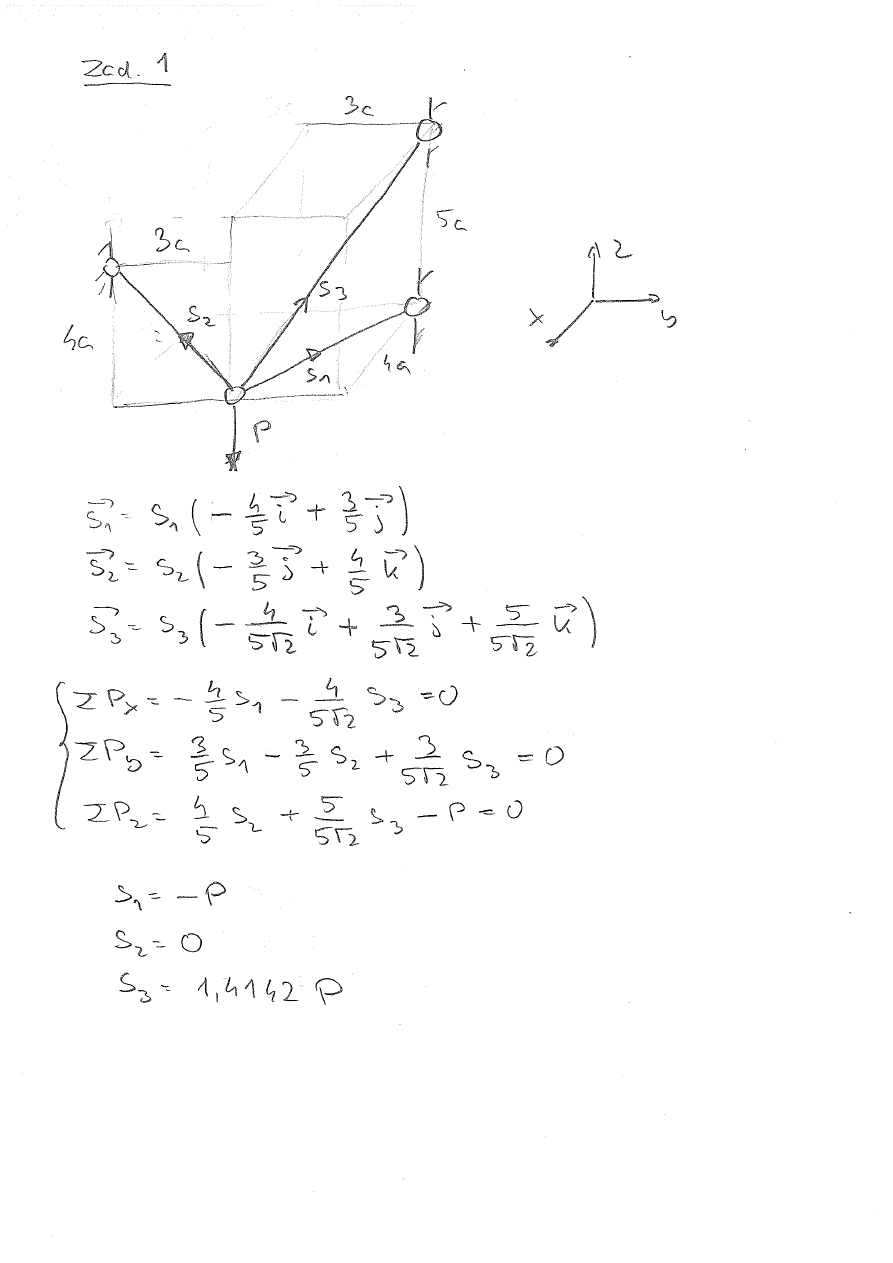 Zad. 1
3a
5a
3a
4a
S2
S3
S1
4a
P
z
x
y
S⃗1 = S1 (− 4/5 i⃗ + 3/5 j⃗)
S⃗2 = S2 (− 3/5 j⃗ + 4/5 k⃗)
S⃗3 = S3 (− 4/(5√2) i⃗ + 3/(5√2) j⃗ + 5/(5√2) k⃗)
ΣPx = − 4/5 S1 − 4/(5√2) S3 = 0
ΣPy = 3/5 S1 − 3/5 S2 + 3/(5√2) S3 = 0
ΣPz = 4/5 S2 + 5/(5√2) S3 − P = 0
S1 = −P
S2 = 0
S3 = 1,4142 P